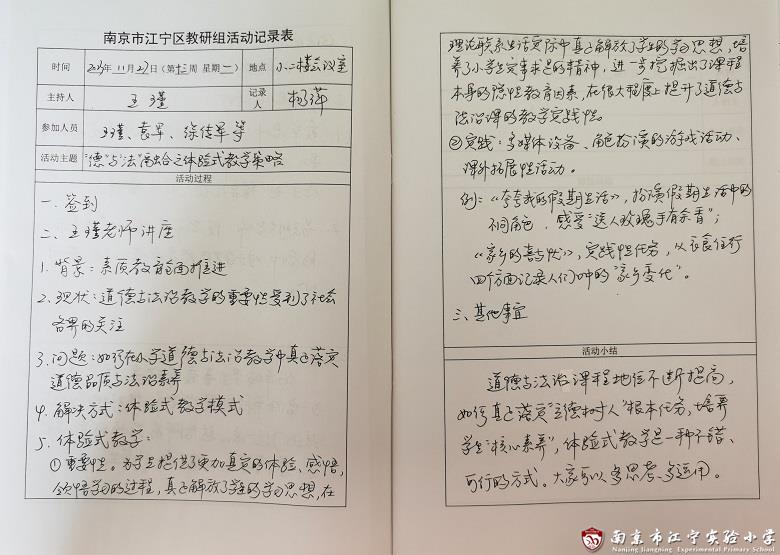 南京市江宁区教研组活动记录表
时间 2023年11月27日(第十三周 星期一) 地点 小二楼会议室
主持人 王瑾 记录人 杨萍
参加人员 王瑾、袁军、徐传军等
活动主题 “德”“与”“法”融合之体验式教学策略
活动过程
一、签到
二、王瑾老师讲座
1.背景:素质教育的全面推进
2.现状:道德与法治教学的重要性受到了社会
各界的关注
3.问题:如何在小学道德与法治教学中真正落实
道德品质与法治素养
4.解决方式:体验式教学模式
5.体验式教学:
①重要性。为学生提供了更加真实的体验、感悟、
领悟学习的过程,真正解放了学生的学习思想,在
理论联系生活实际中真正解放了学生的学习思想,培
养了小学生实事求是的精神,进一步挖掘出了课程
本身的隐性教育因素,在很大程度上提升了道德与
法治课的教学实践性。
②实践:多媒体设备、角色扮演的游戏活动、
课外拓展性活动。
例:《夸夸我的假期生活》,扮演假期生活中的
不同角色,感受“送人玫瑰手有余香”;
《家乡的喜与忧》,实践性任务,从衣食住行
四个方面记录人们口中的“家乡变化”。
三、其他事宜
活动小结
道德与法治课程地位不断提高,
如何真正落实“立德树人”根本任务,培养
学生“核心素养”,体验式教学是一种不错、
可行的方式。大家可以多思考、多运用。
南京市江宁实验小学
Nanjing Jiangning Experimental Primary School